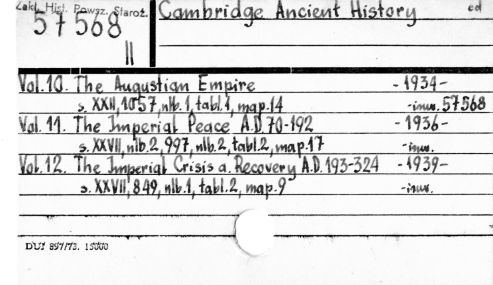 Zakł. Hist. Powsz. Staroż.
57568
II
Cambridge Ancient History
ed
Vol.10. The Augustian Empire -1934-
s. XXII, 1057, nlb.1, tabl.1, map.14 -inw. 57568
Vol. 11. The Imperial Peace A.D.70-192 -1936-
s. XXVII, nlb.2, 997, nlb.2, tabl.2, map.17 -inw.
Vol.12. The Imperial Crisis a. Recovery A.D.193-324 -1939-
s. XXVII, 849, nlb.1, tabl.2, map.9 -inw.
DUJ 897/73. 15000